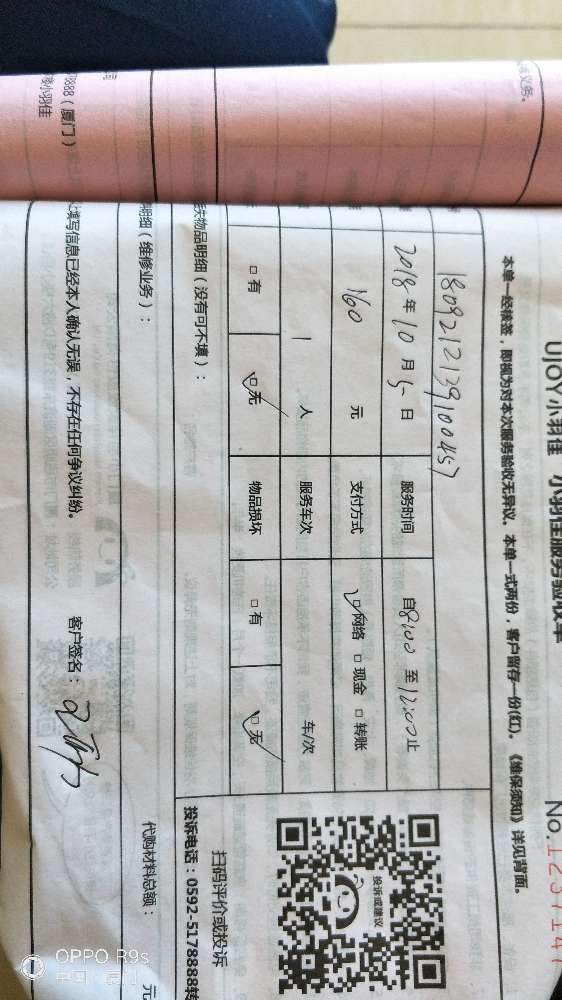 UJOY小羽佳 小羽佳服务验收单
No.1237147
本单一经核签，即视为对本次服务验收无异议。本单一式两份，客户留存一份(红)。《维保须知》详见背面。
2018年10月5日 服务时间 自8:00至12:00止
160 元 支付方式 ☑网络 □现金 □转账
1 人 服务车次 车/次
□有 ☑无 物品损坏 □有 ☑无
失物品明细（没有可不填）：
明细（维修业务）：
代购材料总额： 元
填写信息已经本人确认无误，不存在任何争议纠纷。
客户签名：
投诉或建议
扫码评价或投诉
投诉电话：0592-5178888转
8888（厦门）
小羽佳
义务。
OPPO R9s
中国·厦门